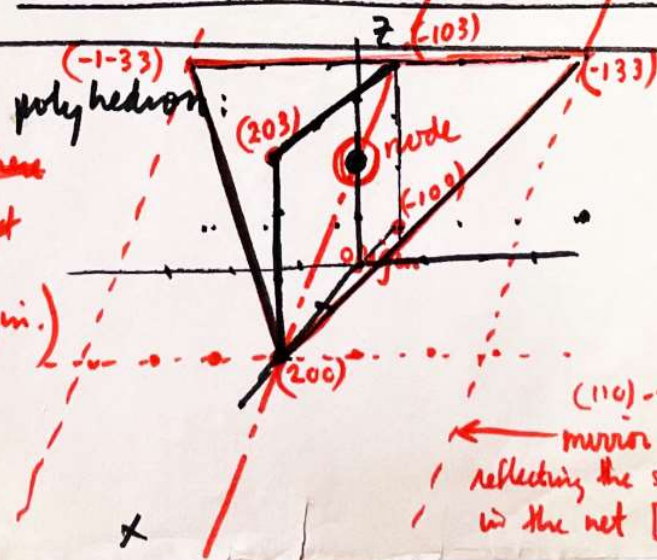 z (-103)
(-1-33) (-133)
polyhedron:
(203) node
(-100)
origin
in.)
(200)
(110)-
mirror
reflecting the s
in the net [
x